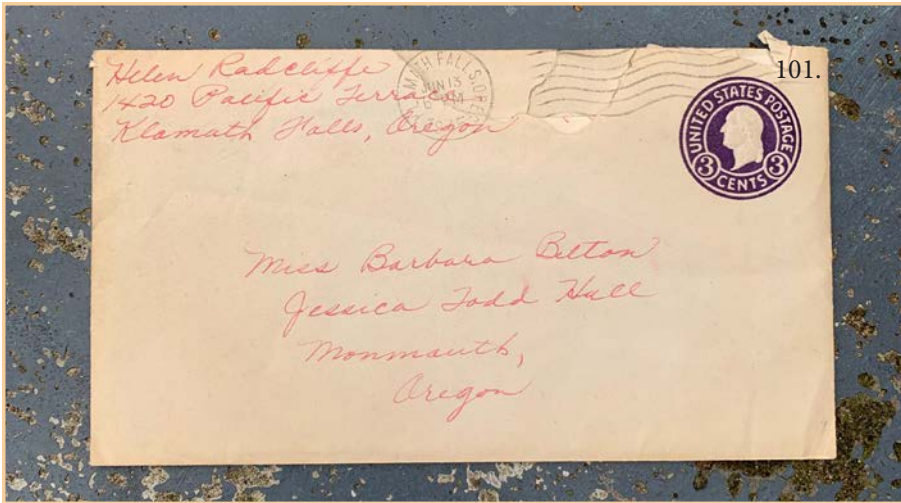 Helen Radcliffe
1420 Pacific Terrace
Klamath Falls, Oregon
KLAMATH FALLS, OREG.
JUN 13
PM
101.
UNITED STATES POSTAGE
3 CENTS 3
Miss Barbara Belton
Jessica Todd Hall
Monmouth,
Oregon